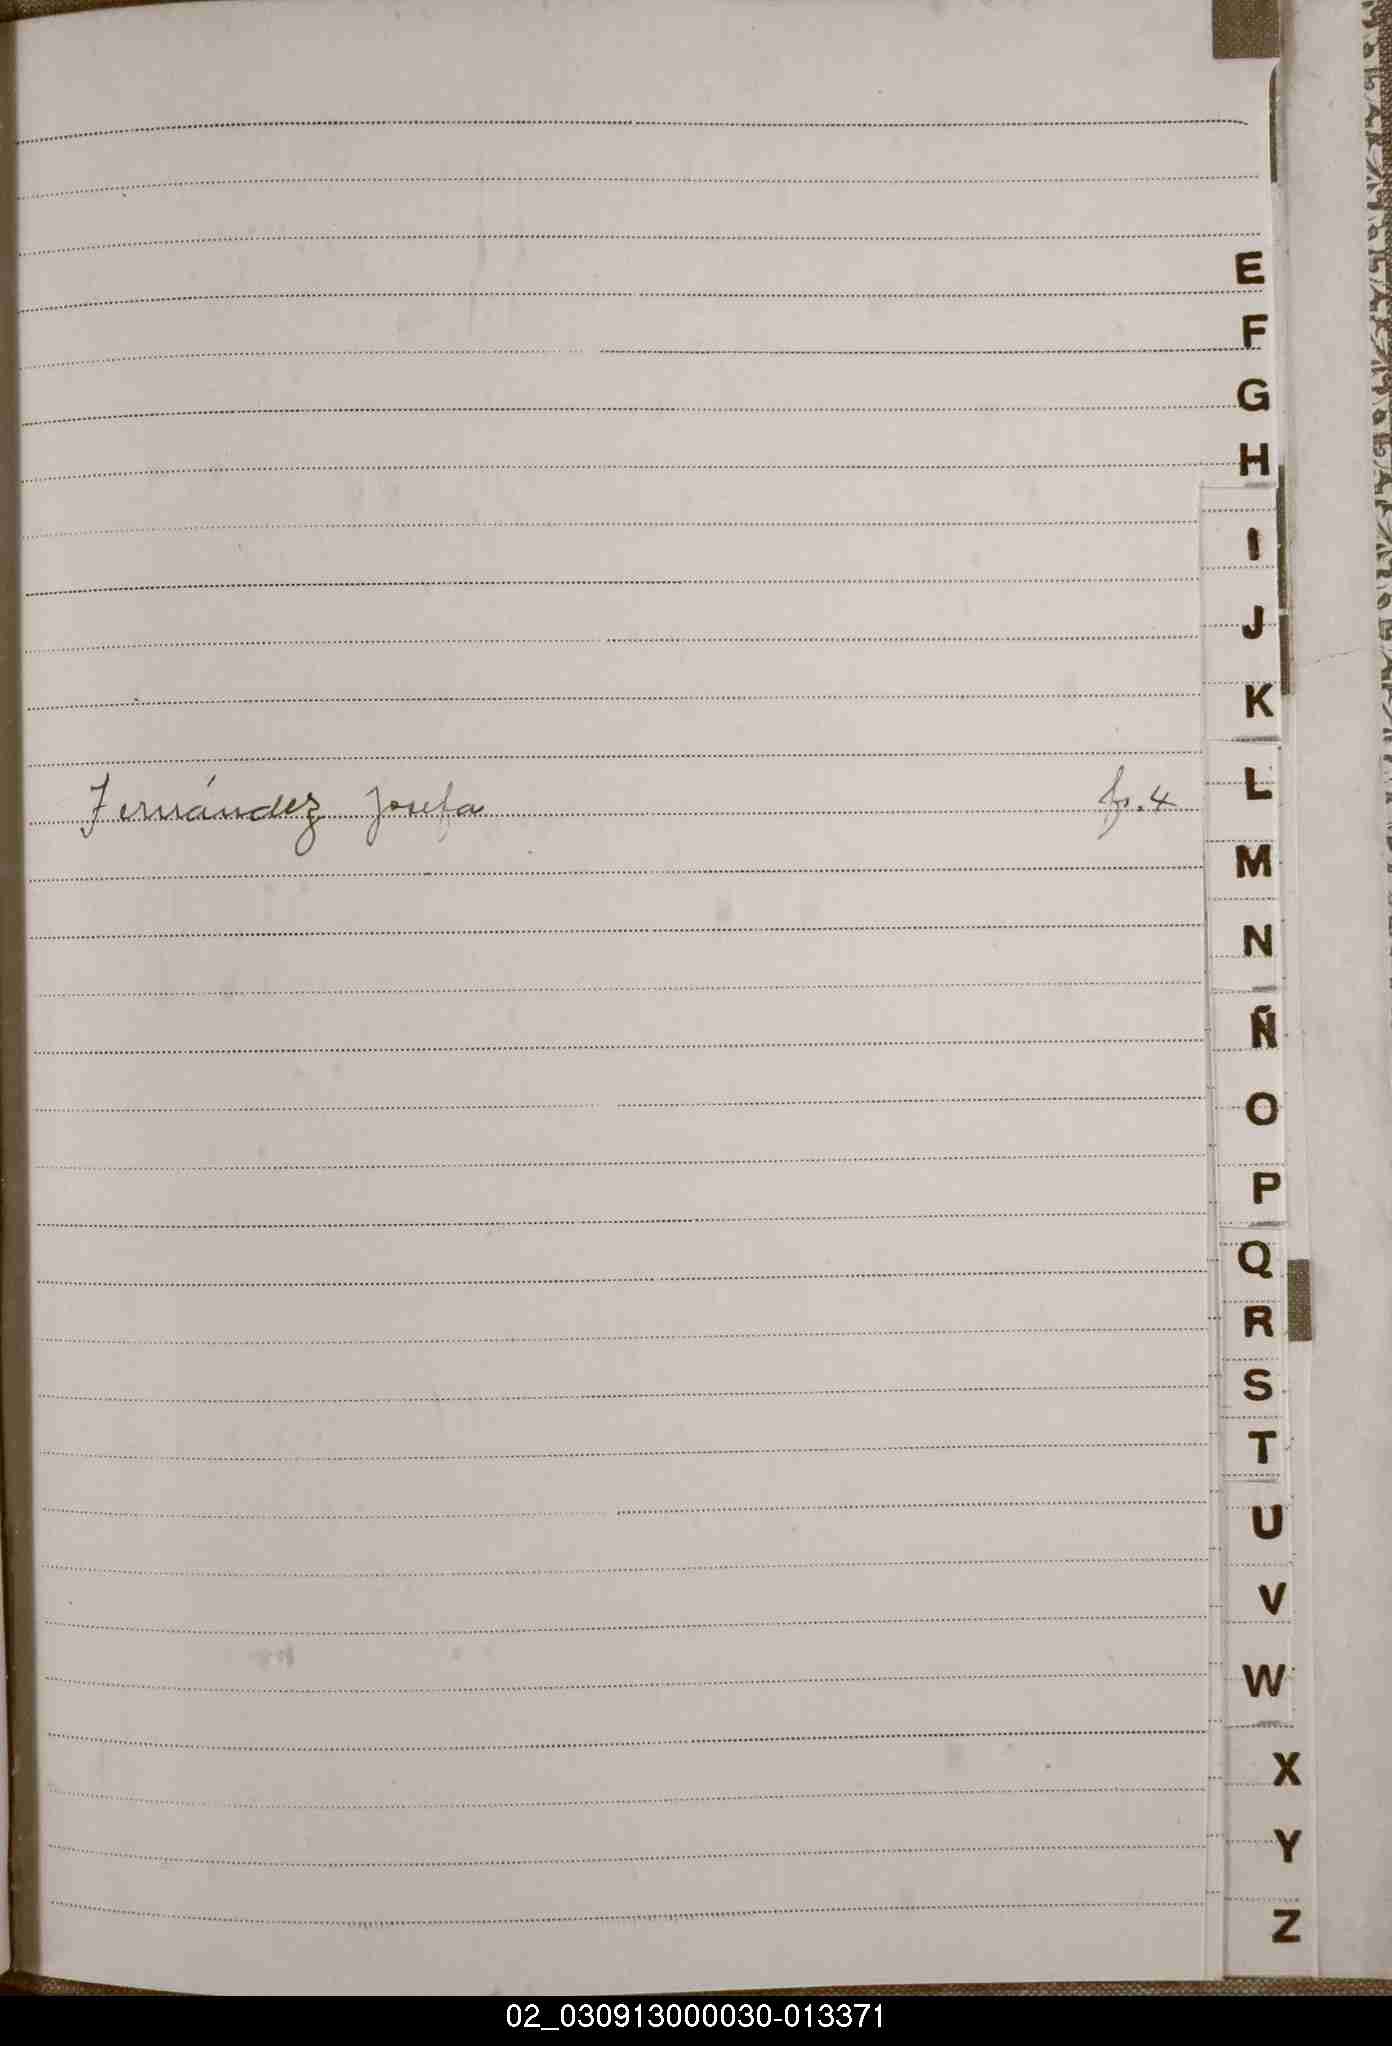 E
F
G
H
I
J
K
Fernández Josefa fs. 4
L
M
N
Ñ
O
P
Q
R
S
T
U
V
W
X
Y
Z
02_030913000030-013371